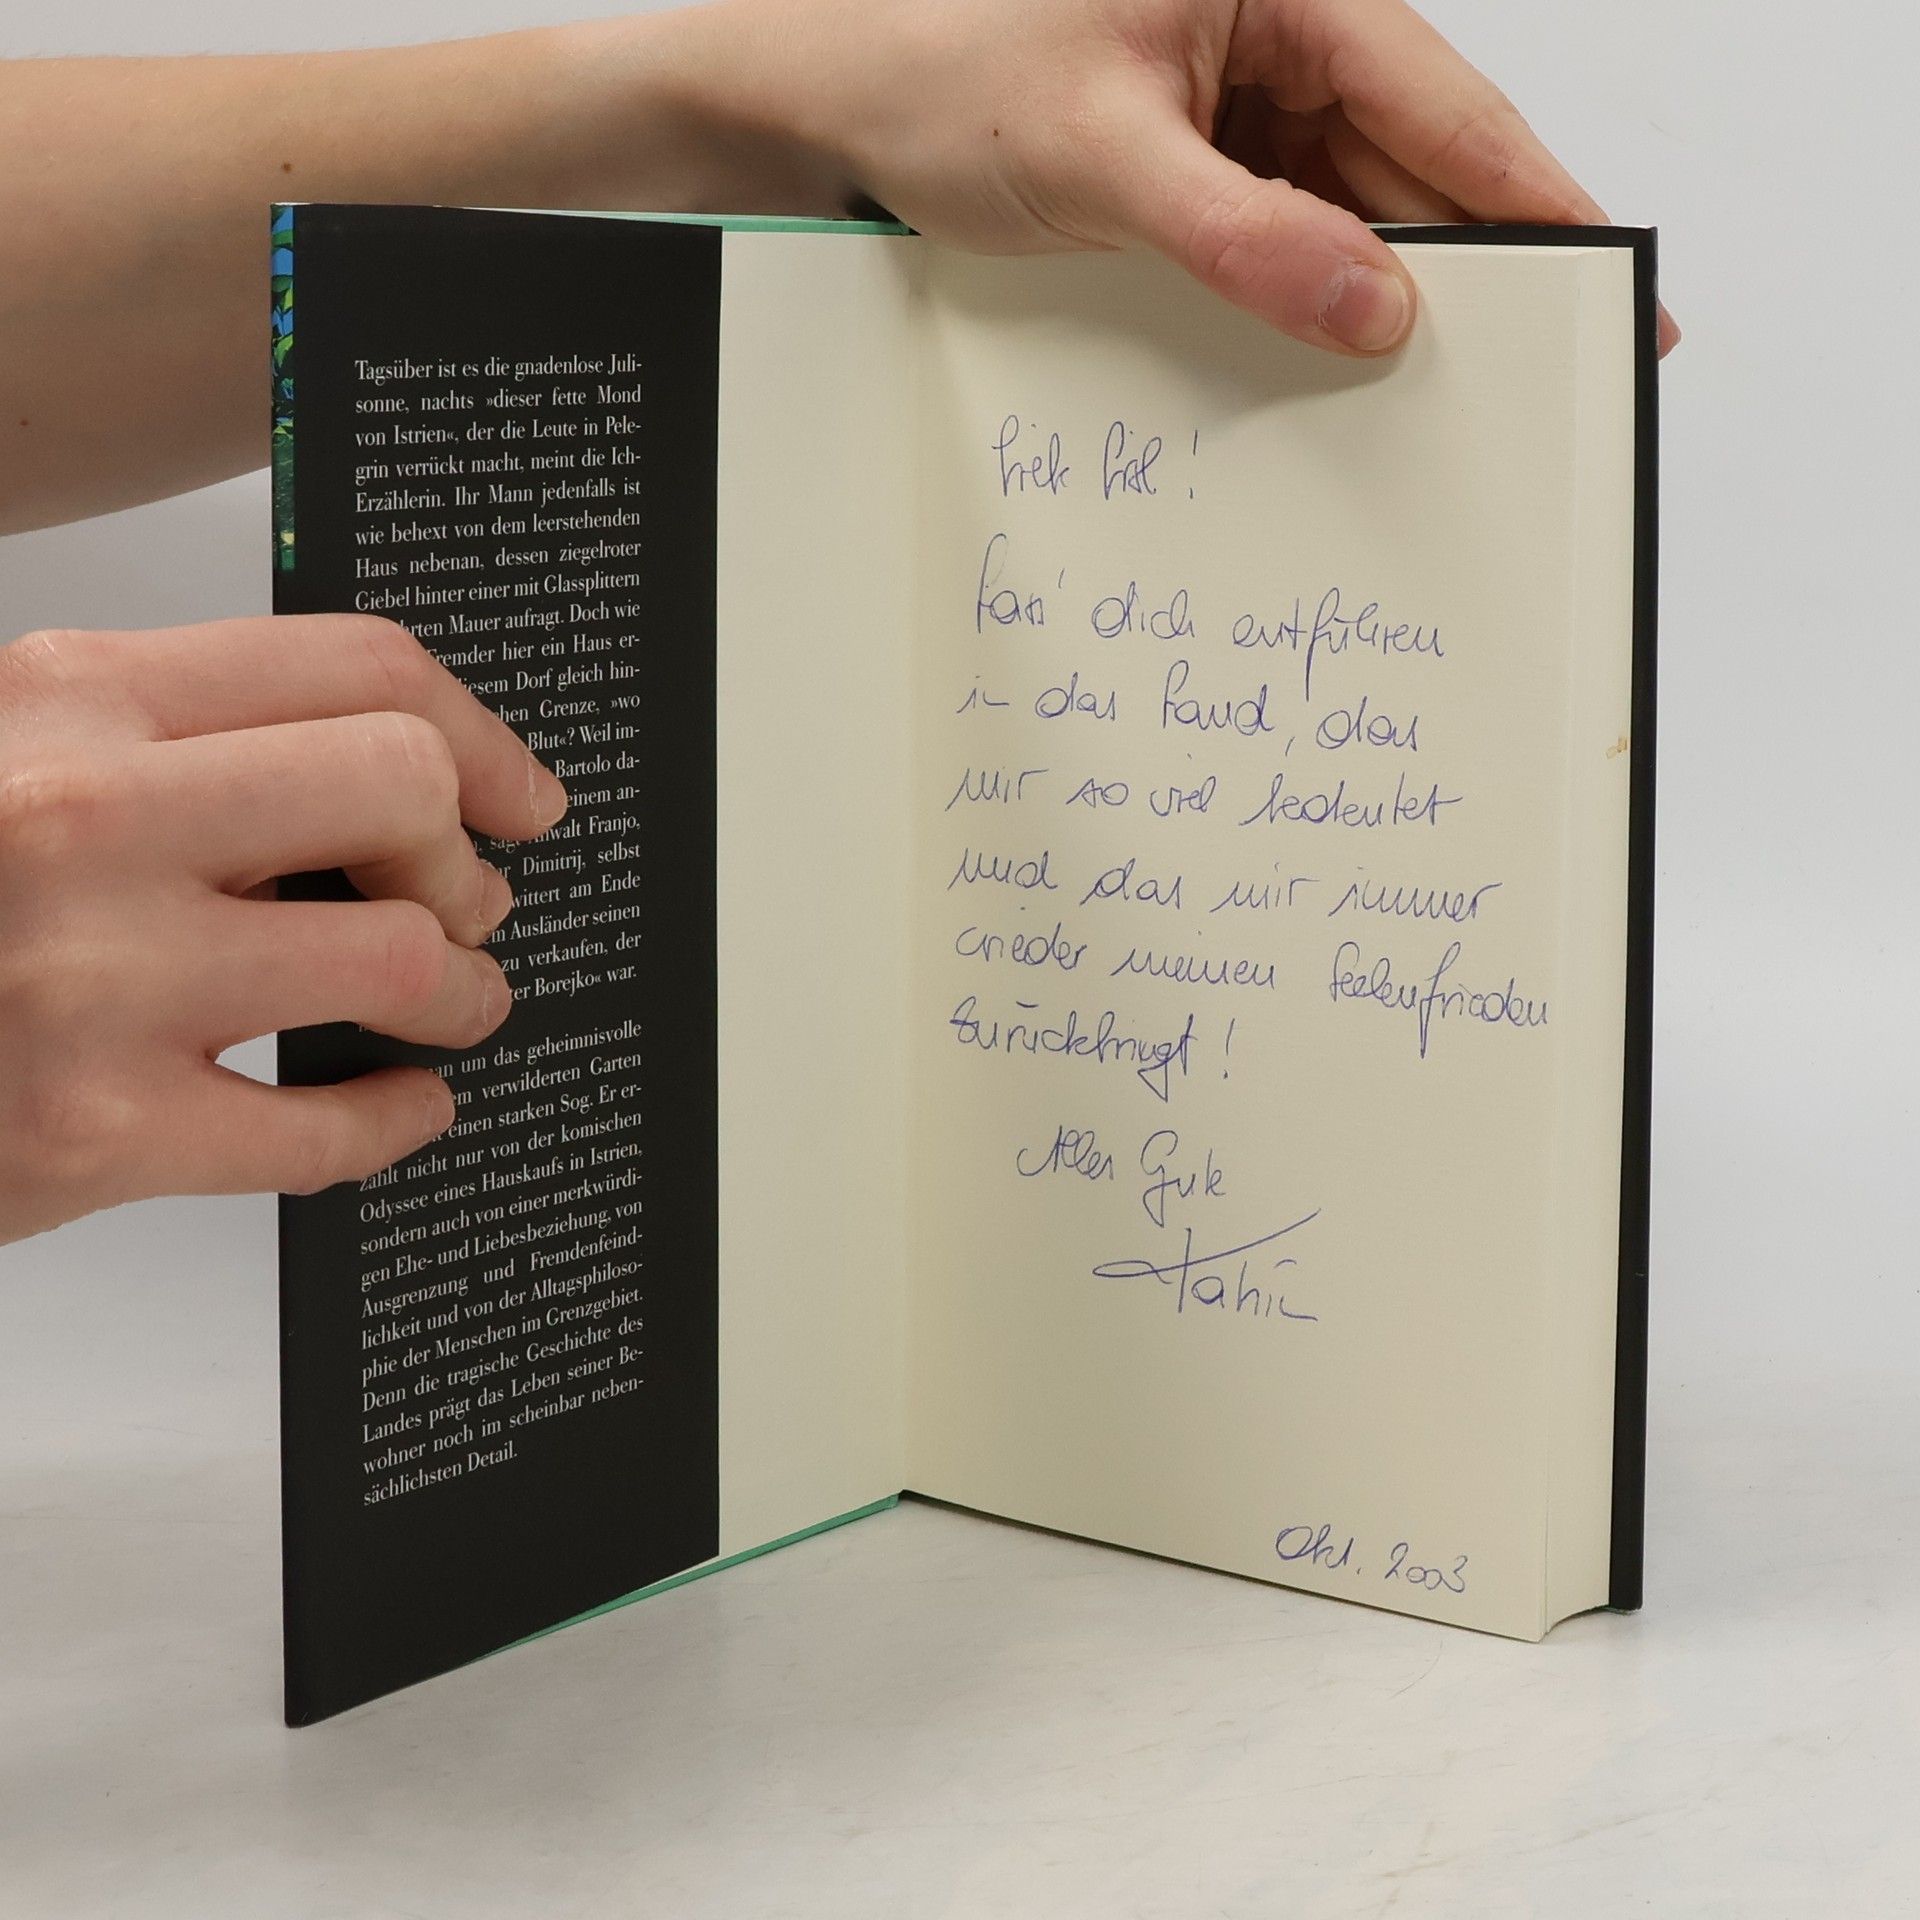 Tagsüber ist es die gnadenlose Juli-
sonne, nachts »dieser fette Mond
von Istrien«, der die Leute in Pele-
grin verrückt macht, meint die Ich-
Erzählerin. Ihr Mann jedenfalls ist
wie behext von dem leerstehenden
Haus nebenan, dessen ziegelroter
Giebel hinter einer mit Glassplittern
Mauer aufragt. Doch wie
Fremder hier ein Haus er-
diesem Dorf gleich hin-
Grenze, »wo
Blut«? Weil im-
Bartolo da-
einem an-
sagt Anwalt Franjo,
Dimitrij, selbst
wittert am Ende
Ausländer seinen
zu verkaufen, der
Borejko« war.
um das geheimnisvolle
verwilderten Garten
einen starken Sog. Er er-
zählt nicht nur von der komischen
Odyssee eines Hauskaufs in Istrien,
sondern auch von einer merkwürdi-
gen Ehe- und Liebesbeziehung, von
Ausgrenzung und Fremdenfeind-
lichkeit und von der Alltagsphiloso-
phie der Menschen im Grenzgebiet.
Denn die tragische Geschichte des
Landes prägt das Leben seiner Be-
wohner noch im scheinbar neben-
sächlichsten Detail.
Liebe !
Lass' dich entführen
in das Land, das
mir so viel bedeutet
und das mir immer
wieder meinen Seelenfrieden
zurückbringt !
Alles Gute
Okt. 2003